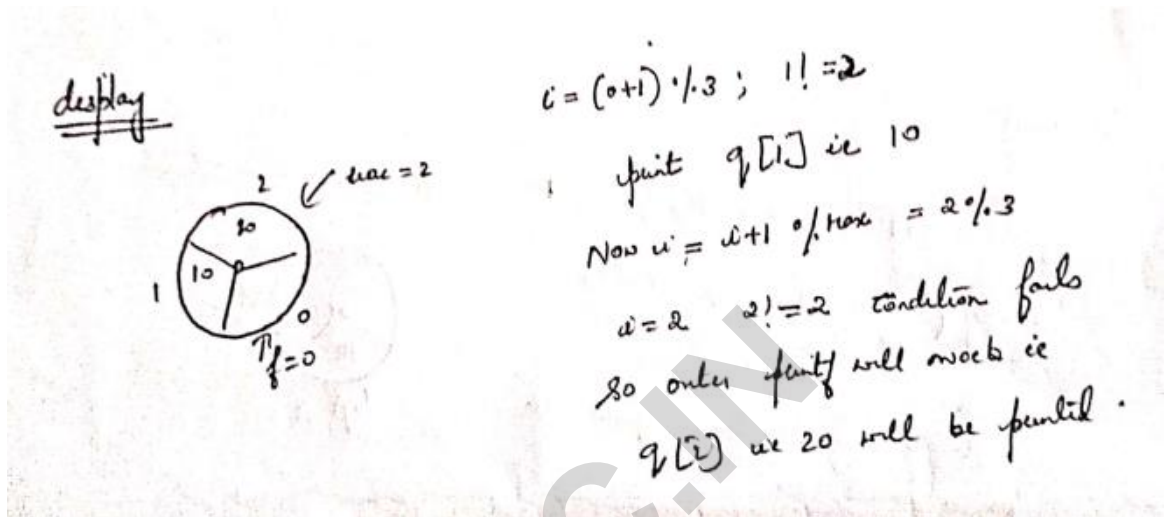 display
2
rear = 2
20
10
1
0
f=0
i = (0+1) % 3 ; 1! = 2
print q[1] ie 10
Now i = i+1 % max = 2 % 3
i = 2 2! = 2 condition fails
so outer printf will work ie
q[2] ie 20 will be printed .
C.IN